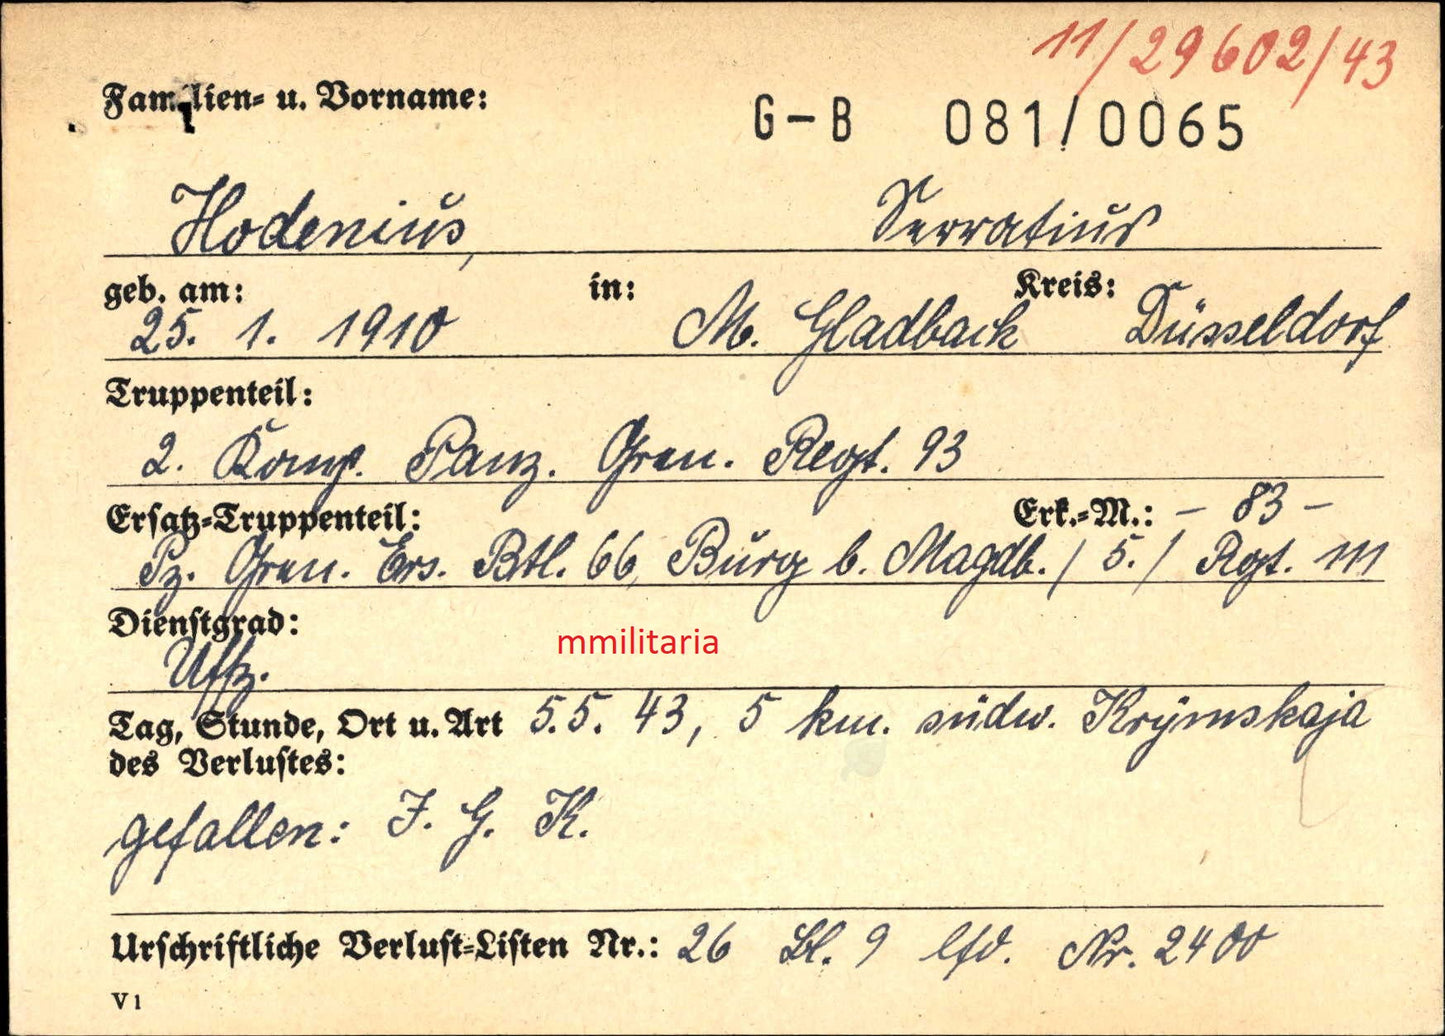 11/29602/43
Familien- u. Vorname:
G-B 081/0065
Hodenius, Servatius
geb. am: in: Kreis:
25. 1. 1910 M. Gladbach Düsseldorf
Truppenteil:
2. Komp. Panz. Gren. Regt. 93
Ersatz-Truppenteil: Erk.-M.: - 83 -
Pz. Gren. Ers. Btl. 66, Burg b. Magdb. / 5. / Rgt.
Dienstgrad:
mmilitaria
Uffz.
Tag, Stunde, Ort u. Art 5.5. 43, 5 km. südw. Krymskaja
des Verlustes:
gefallen: J. G. K.
Urschriftliche Verlust-Listen Nr.: 26 Bl. 9 lfd. Nr. 2400
V1